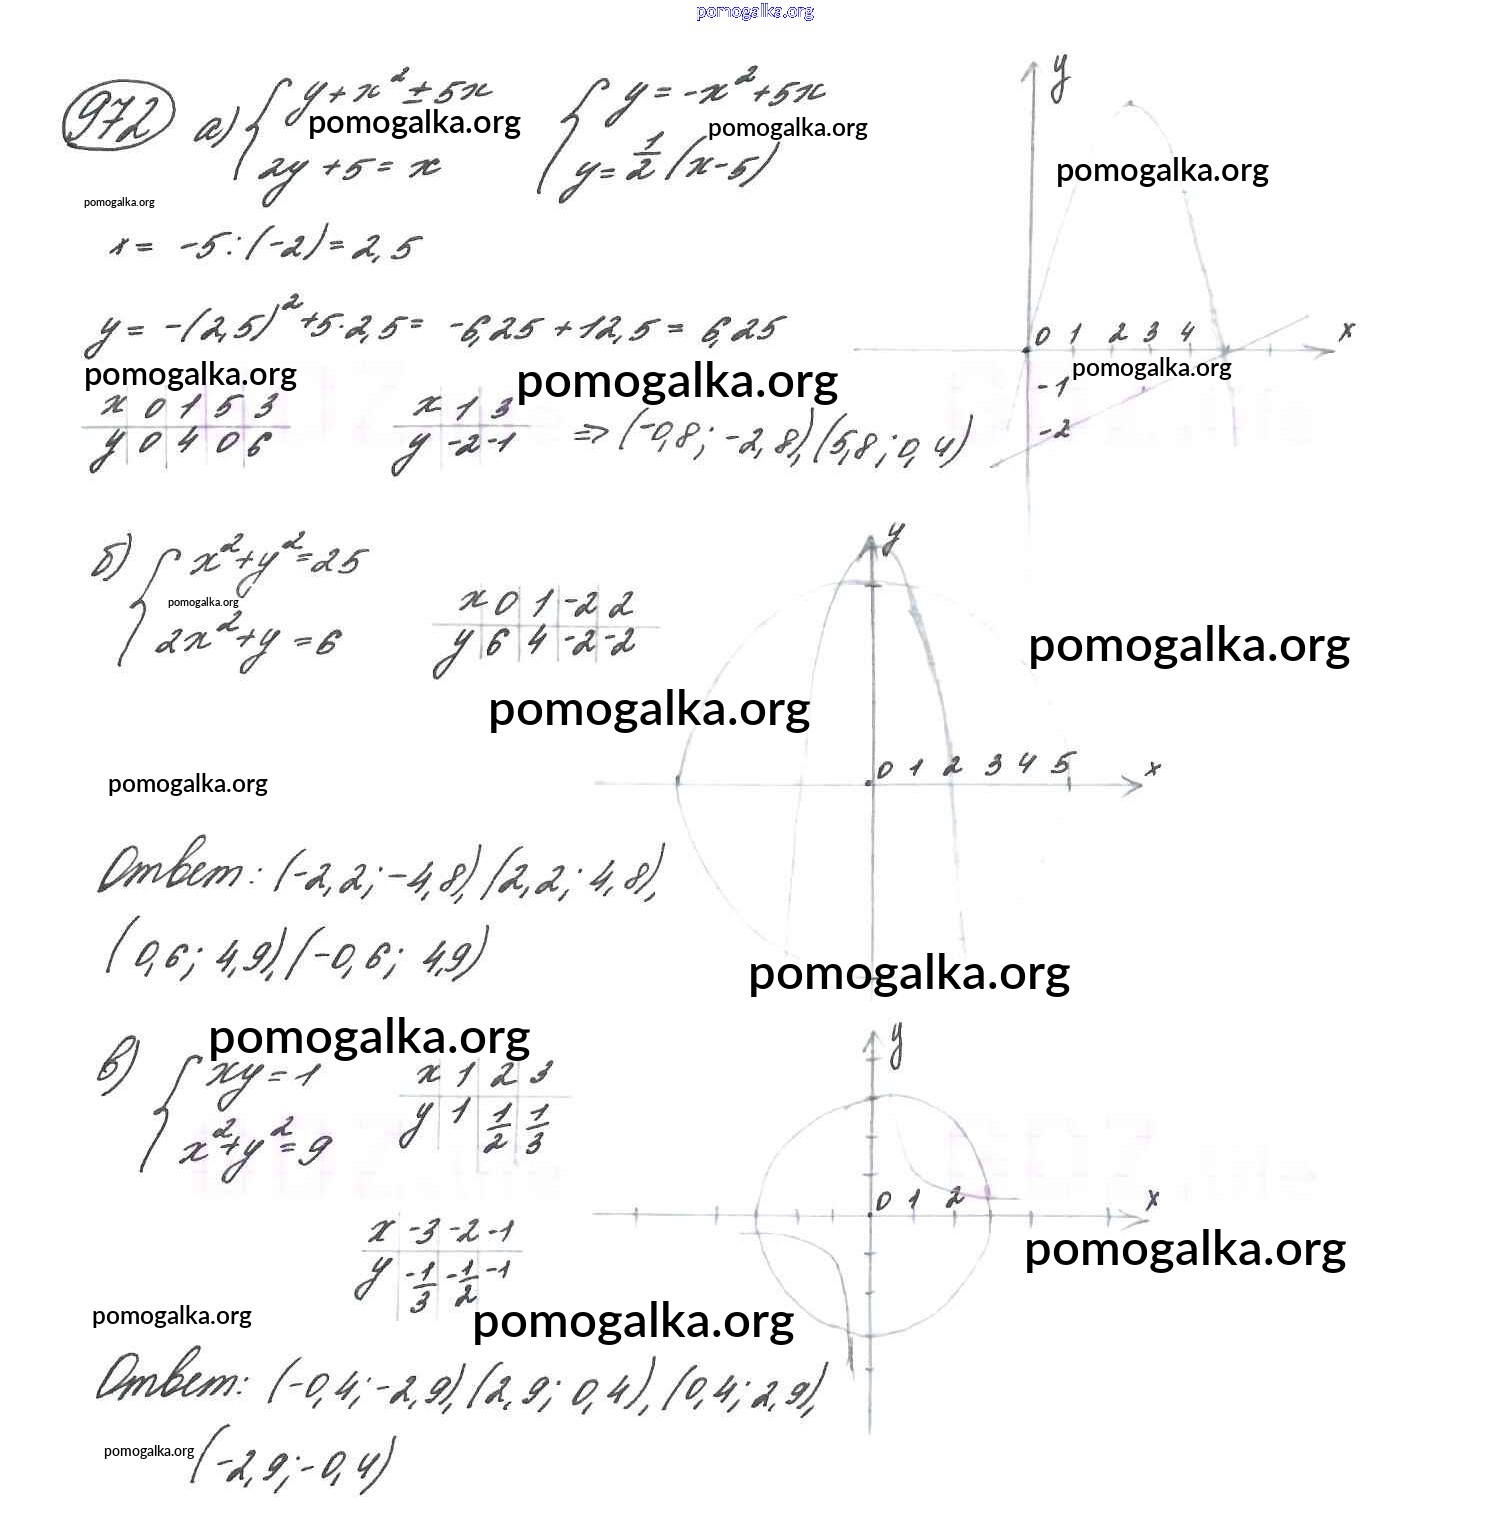 pomogalka.org
972 а) { y + x² ± 5x { y = -x² + 5x y
pomogalka.org pomogalka.org
2y + 5 = x y = 1/2 (x - 5) pomogalka.org
pomogalka.org
x = -5 : (-2) = 2,5
y = -(2,5)² + 5·2,5 = -6,25 + 12,5 = 6,25
0 1 2 3 4 x
pomogalka.org pomogalka.org pomogalka.org
-1
x 0 1 5 3 x 1 3
y 0 4 0 6 y -2 -1 => (-0,8; -2,8), (5,8; 0,4)
-2
б) { x² + y² = 25 y
pomogalka.org x 0 1 -2 2
2x² + y = 6 y 6 4 -2 -2
pomogalka.org
pomogalka.org
0 1 2 3 4 5 x
pomogalka.org
Ответ: (-2,2; -4,8), (2,2; 4,8),
(0,6; 4,9), (-0,6; 4,9)
pomogalka.org
pomogalka.org y
в) { xy = 1 x 1 2 3
x² + y² = 9 y 1 1/2 1/3
0 1 2 x
x -3 -2 -1 pomogalka.org
y -1/3 -1/2 -1
pomogalka.org pomogalka.org
Ответ: (-0,4; -2,9), (2,9; 0,4), (0,4; 2,9),
pomogalka.org (-2,9; -0,4)